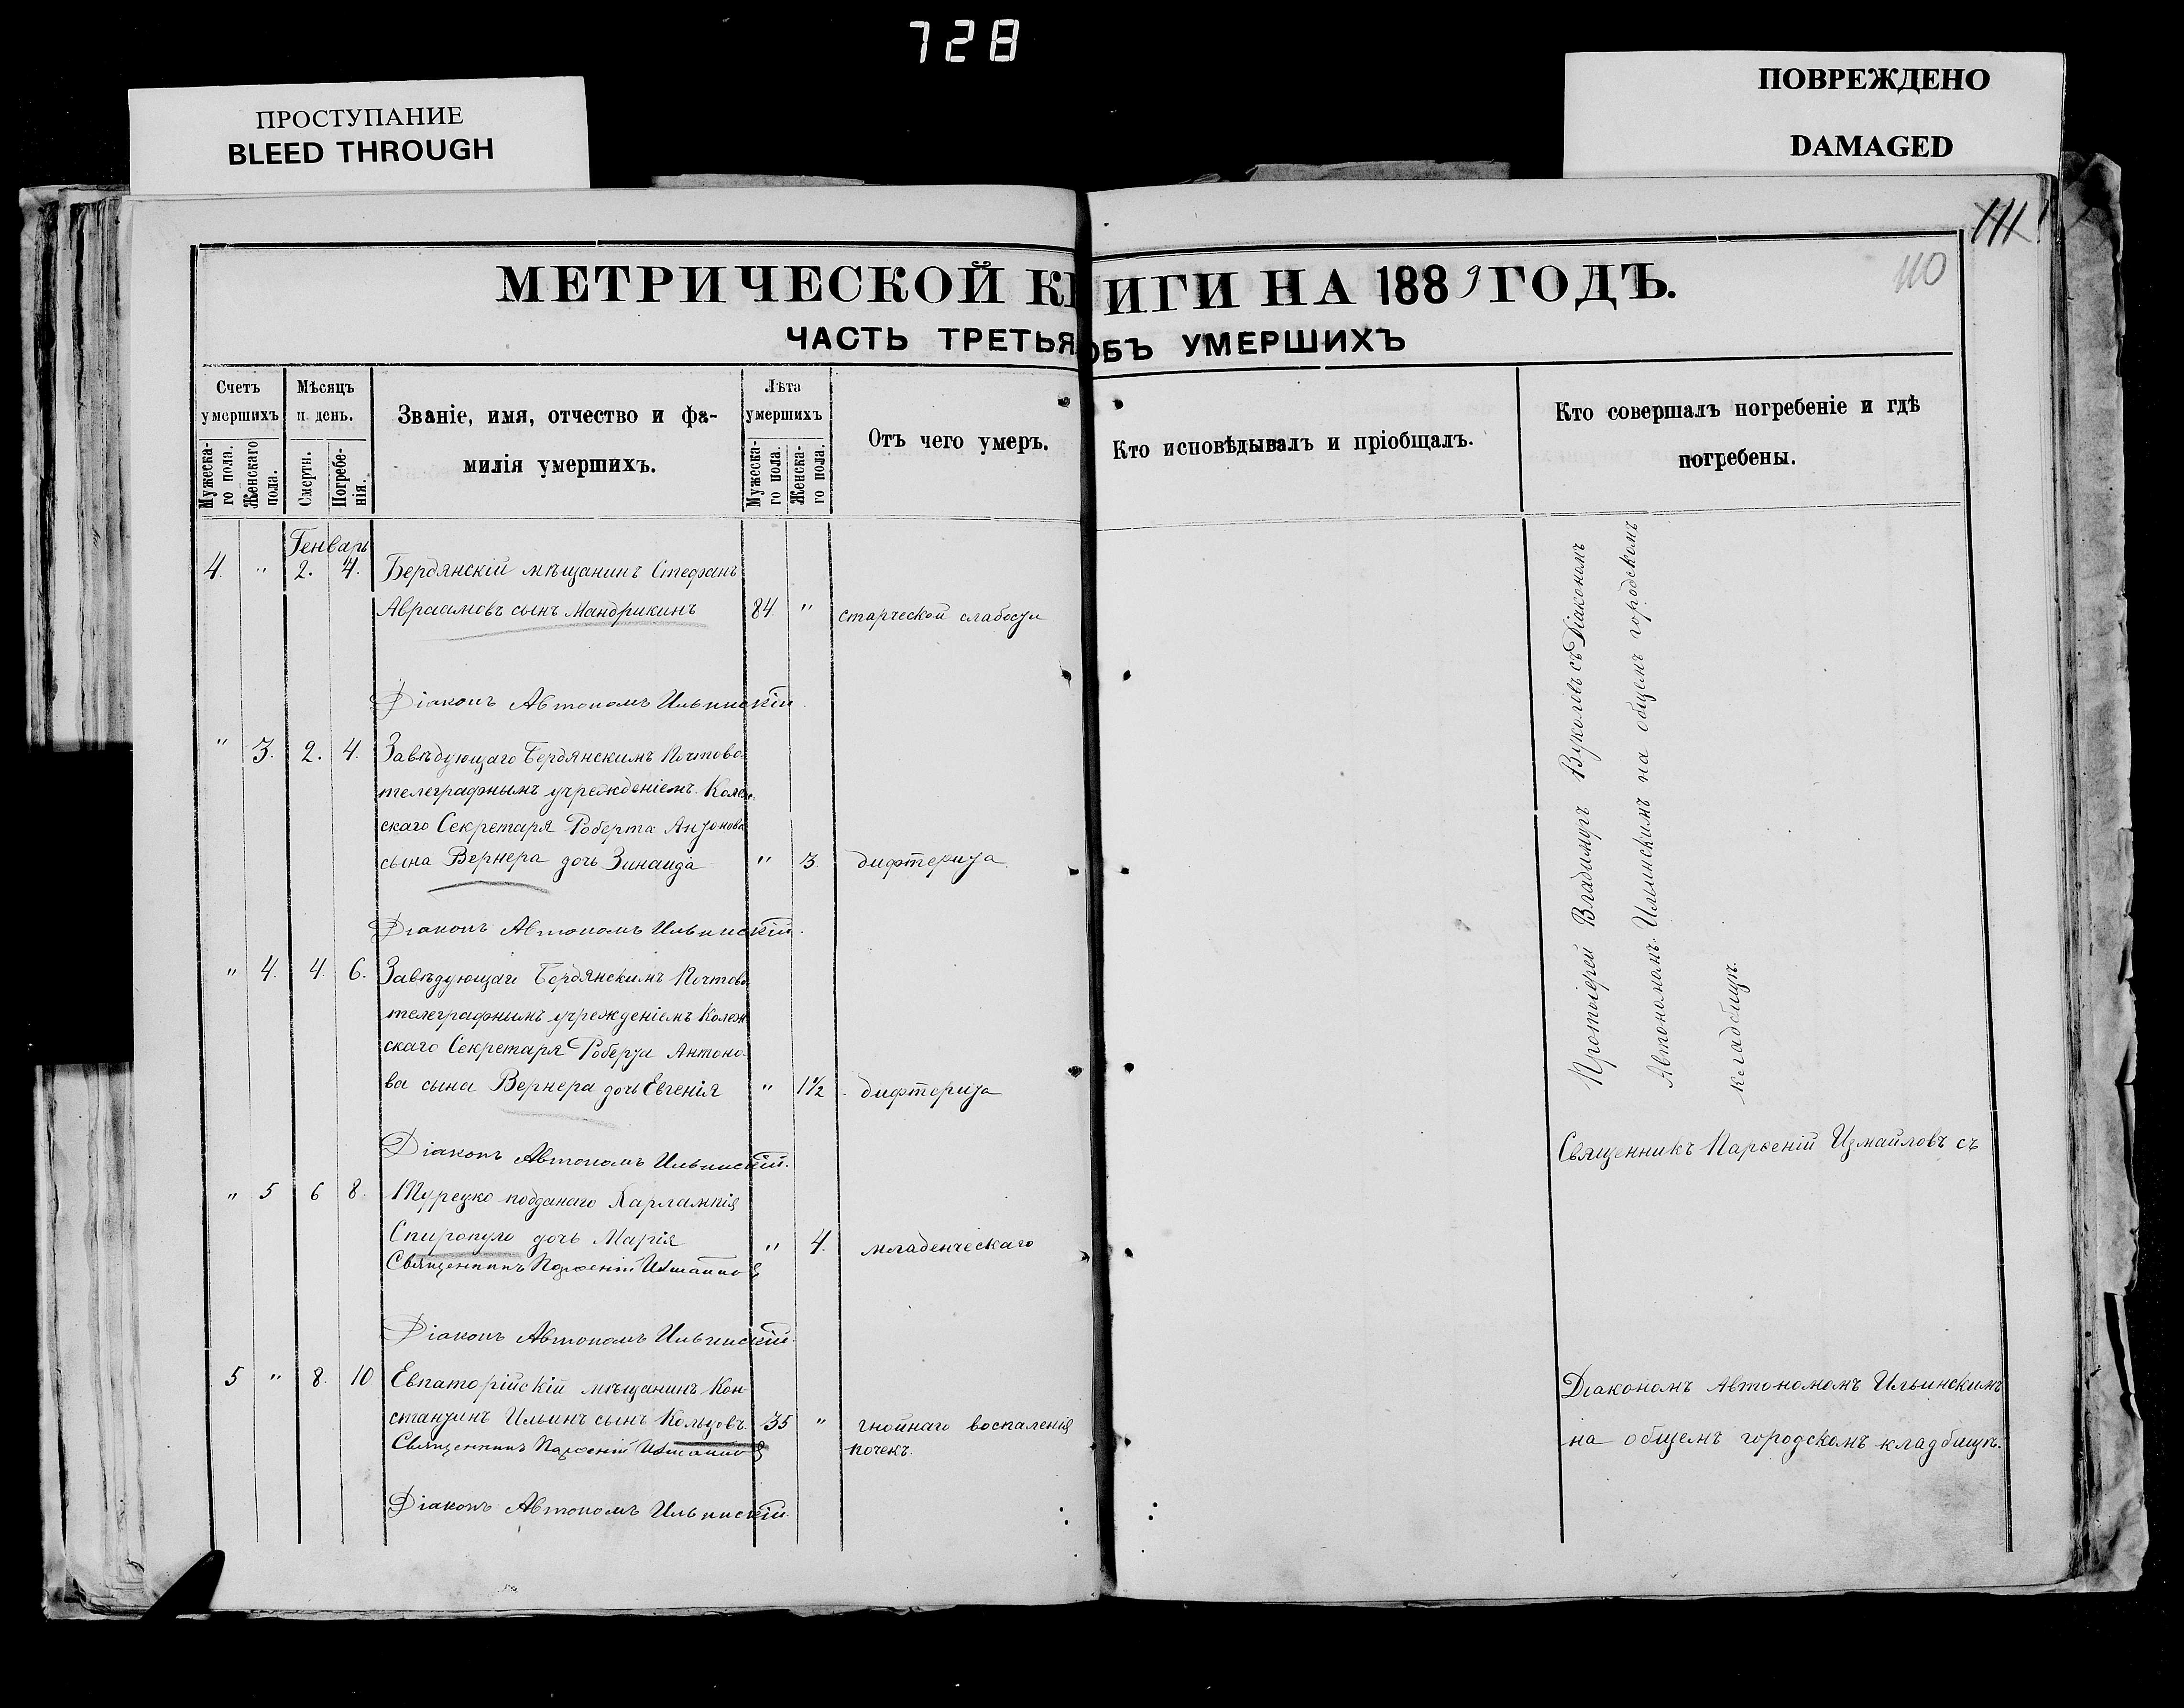 728
ПРОСТУПАНИЕ
BLEED THROUGH
ПОВРЕЖДЕНО
DAMAGED
111
110
МЕТРИЧЕСКОЙ КНИГИ НА 1889 ГОДЪ.
ЧАСТЬ ТРЕТЬЯ ОБЪ УМЕРШИХЪ
Счетъ умершихъ
Мужеска-го пола.
Женскаго пола.
Мѣсяцъ и день.
Смерти.
Погребе-нія.
Званіе, имя, отчество и фа-
милія умершихъ.
Лѣта умершихъ
Мужеска-го пола.
Женска-го пола.
Отъ чего умеръ.
Кто исповѣдывалъ и пріобщалъ.
Кто совершалъ погребеніе и гдѣ
погребены.
Генварь
4. " 2. 4. Бердянскій мѣщанинъ Стефанъ
Авраамовъ сынъ Мандрикинъ 84. " старческой слабости
Діаконъ Автономъ Ильинскій.
" 3. 2. 4. Завѣдующаго Бердянскимъ Почтово-
телеграфнымъ учрежденіемъ Колеж
скаго Секретаря Роберта Антонова
сына Вернера дочь Зинаида " 3. дифтерита
Діаконъ Автономъ Ильинскій.
" 4. 4. 6. Завѣдующаго Бердянскимъ Почтово
телеграфнымъ учрежденіемъ Колеж
скаго Секретаря Роберта Антоно-
ва сына Вернера дочь Евгенія " 1½ дифтерита
Діаконъ Автономъ Ильинскій.
" 5 6 8. Турецко подданаго Харлампія
Спиропуло дочь Марія " 4. младенческаго
Священникъ Парѳеній Измайловъ
Діаконъ Автономъ Ильинскій.
5 " 8. 10 Евпаторійскій мѣщанинъ Кон-
стантинъ Ильинъ сынъ Кольцовъ. 35 " гнойнаго воспаленія
Священникъ Парѳеній Измайловъ почекъ.
Діаконъ Автономъ Ильинскій.
Протоіерей Владиміръ Вуколовъ съ Діакономъ
Автономомъ Ильинскимъ на общемъ городскомъ
кладбищѣ.
Священникъ Парѳеній Измайловъ съ
Діакономъ Автономомъ Ильинскимъ
на общемъ городскомъ кладбищѣ.